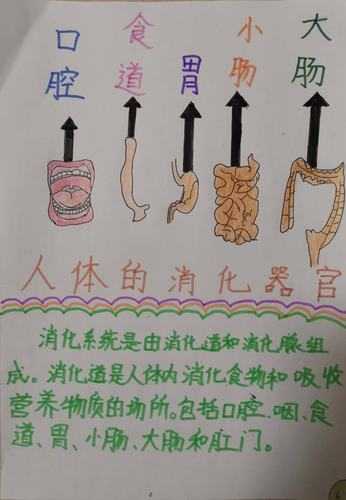 口腔
食道
胃
小肠
大肠
人体的消化器官
消化系统是由消化道和消化腺组
成。消化道是人体内消化食物和吸收
营养物质的场所。包括口腔、咽、食
道、胃、小肠、大肠和肛门。